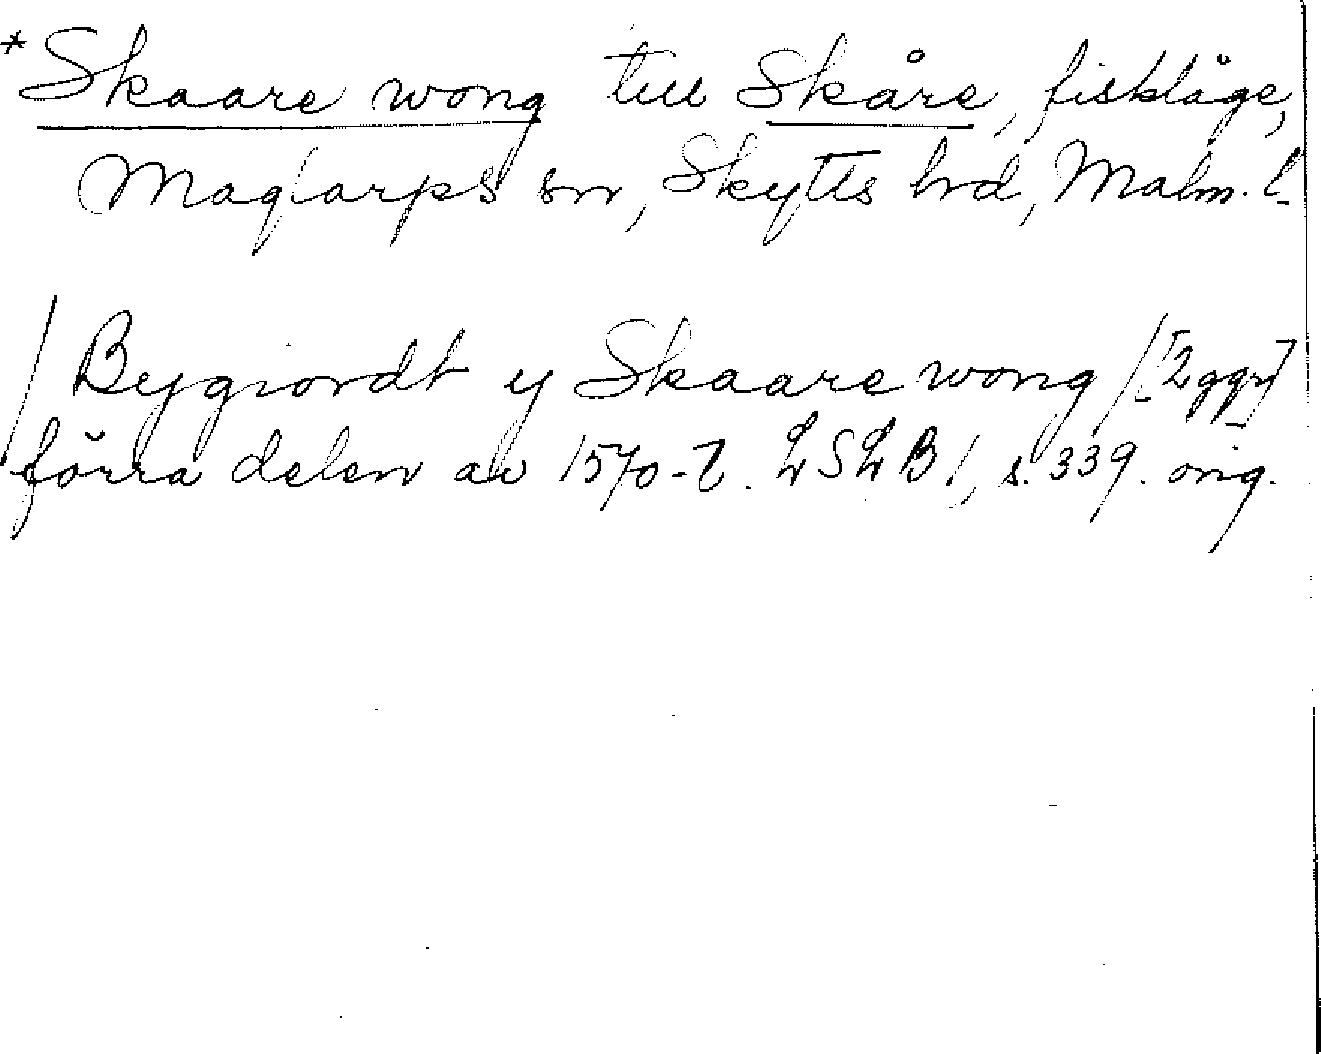 *Skaare wong till Skåre, fiskläge,
Maglarps sn, Skytts hrd, Malm. l.
/Bygiordt y Skaare wong/ [2 ggr]
förra delen av 1570-t. LSLB 1, s. 339. orig.